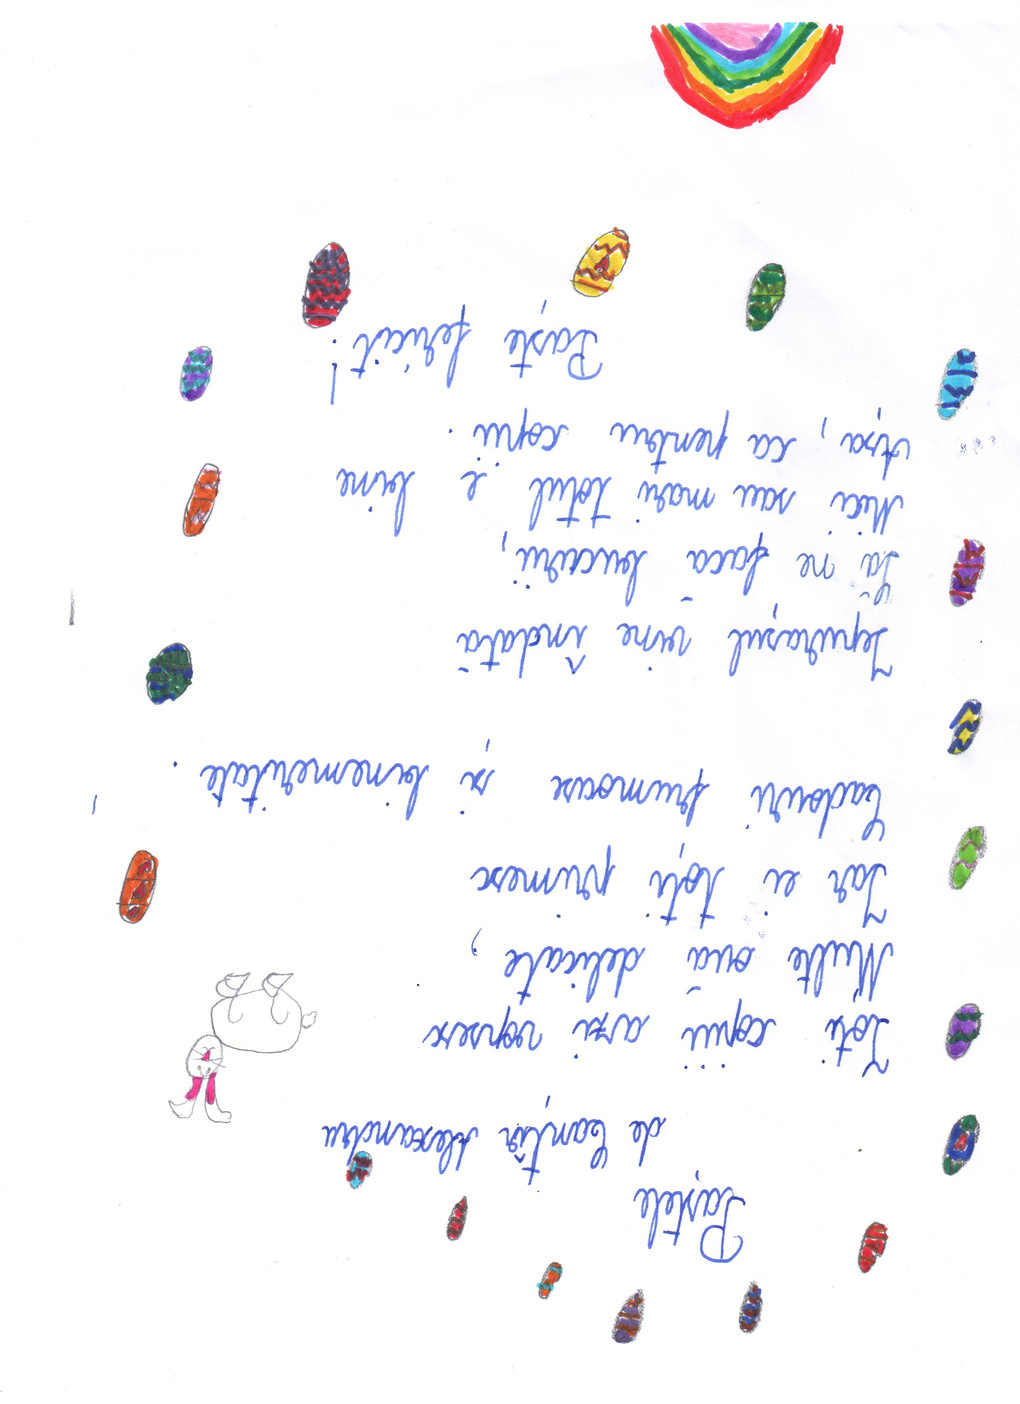 Paștele
de Canțîr Alexandru
Toti copiii azi vopsesc
Multe ouă delicate,
Iar ei toți primesc
Cadouri frumoase și binemeritate.
Iepurașul vine îndată
Să ne facă bucurii,
Mici sau mari totul e bine
ca pentru copii.
Paște fericit!